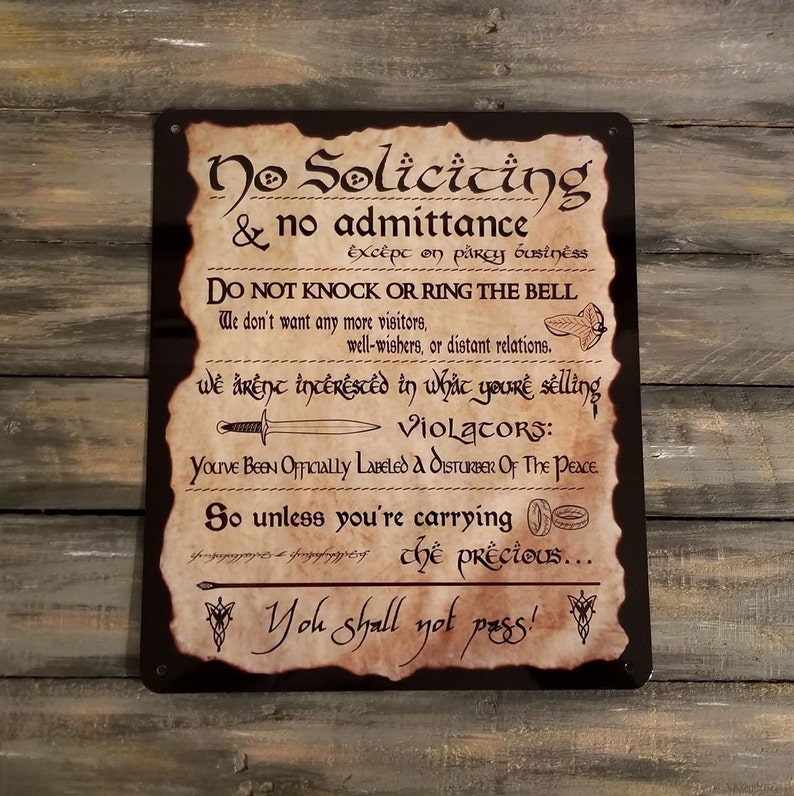 No Soliciting
& no admittance
except on party business
Do not knock or ring the bell
We don't want any more visitors,
well-wishers, or distant relations.
we arent interested in what you're selling
Violators:
You've Been Officially Labeled A Disturber Of The Peace.
So unless you're carrying
the precious...
You shall not pass!